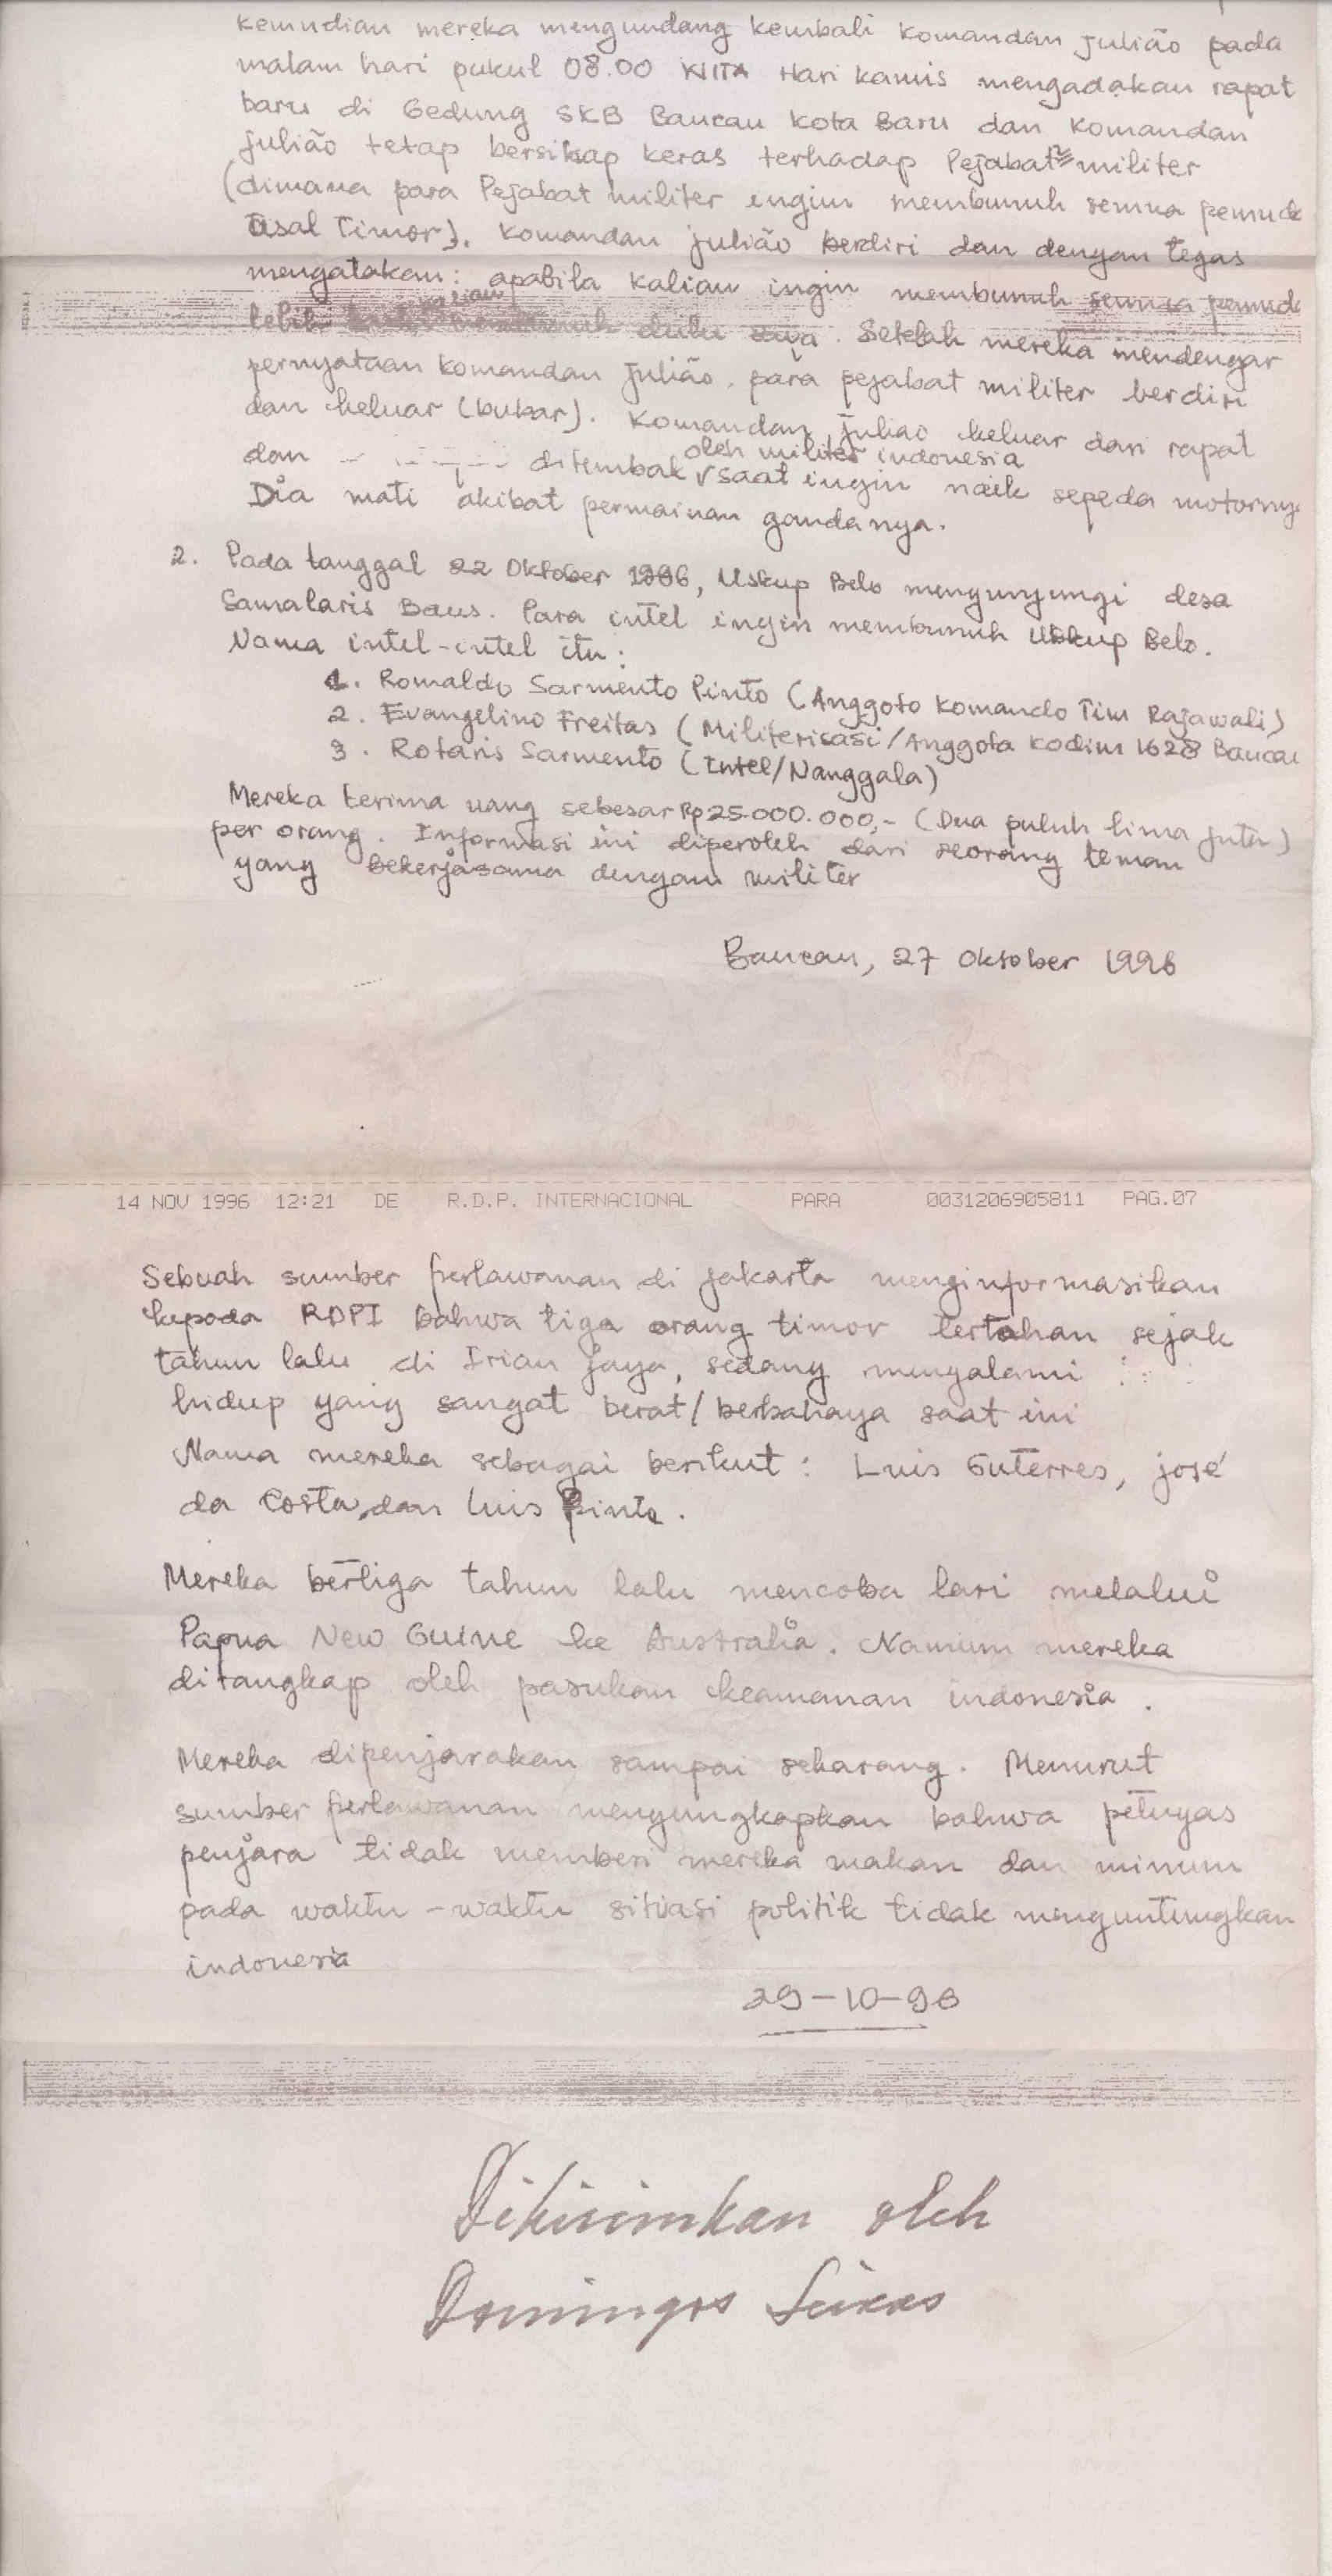 kemudian mereka mengundang kembali komandan Julião pada
malam hari pukul 08.00 WITA Hari kamis mengadakan rapat
baru di Gedung SKB Baucau Kota Baru dan Komandan
Julião tetap bersikap keras terhadap Pejabat² militer
(dimana para Pejabat militer ingin membunuh semua pemuda
asal Timor). Komandan Julião berdiri dan dengan tegas
mengatakan: apabila kalian ingin membunuh semua pemuda
lebih dulu saya. Setelah mereka mendengar
pernyataan Komandan Julião, para pejabat militer berdiri
dan keluar (bubar). Komandan Juliao keluar dari rapat
dan ditembak oleh militer indonesia saat ingin naik sepeda motornya
Dia mati akibat permainan gandanya.
2. Pada tanggal 22 Oktober 1996, Uskup Belo mengunjungi desa
Samalaris Baus. Para intel ingin membunuh Uskup Belo.
Nama intel-intel itu:
1. Romaldo Sarmento Pinto (Anggoto Komando Tim Rajawali)
2. Evangelino Freitas (Militerisasi/Anggota Kodim 1628 Baucau
3. Rotaris Sarmento (Intel/Nanggala)
Mereka terima uang sebesar Rp 25.000.000,- (Dua puluh lima juta)
per orang. Informasi ini diperoleh dari seorang teman
yang bekerjasama dengan militer
Baucau, 27 Oktober 1996
14 NOV 1996 12:21 DE R.D.P. INTERNACIONAL PARA 0031206905811 PAG.07
Sebuah sumber perlawanan di jakarta menginformasikan
kepoda RDPI bahwa tiga orang timor tertahan sejak
tahun lalu di Irian jaya, sedang mengalami
hidup yang sangat berat/berbahaya saat ini
Nama mereka sebagai berikut: Luis Guterres, josé
da Costa, dan Luis Pinto.
Mereka bertiga tahun lalu mencoba lari melalui
Papua New Guine ke Australia. Namum mereka
ditangkap oleh pasukan keamanan indonesia.
Mereka dipenjarakan sampai sekarang. Menurut
sumber perlawanan mengungkapkan bahwa petugas
penjara tidak memberi mereka makan dan minum
pada waktu-waktu situasi politik tidak menguntungkan
indonesia
29-10-96
Dikirimkan oleh
Domingos Seixas